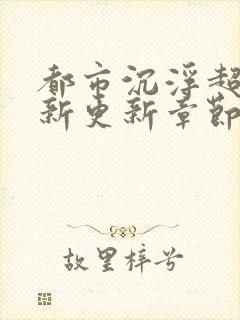 都市沉浮超
新更新章节
故里梓兮